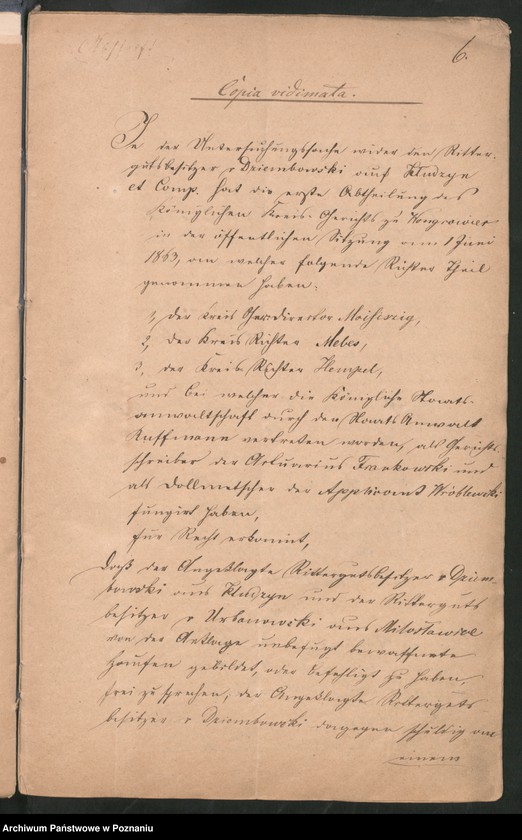 6.
Copia vidimata.
In der Untersuchungssache wider den Ritter-
gutsbesitzer v Dziembowski auf Kludzyn
et Comp. hat die erste Abtheilung des
Königlichen Kreis-Gerichts zu Wongrowiec
in der öffentlichen Sitzung vom 1 Juni
1863, an welcher folgende Richter Theil
genommen haben:
1, der Kreis Ger: director
2, der Kreis Richter Mebes,
3, der Kreis Richter Hempel,
und bei welcher die Königliche Staats-
anwaltschaft durch den Staats Anwalt
vertreten worden, als Gerichts-
schreiber der Actuarius Frankowski und
als Dollmetscher der Wróblewski
fungirt haben,
für Recht erkannt,
Daß der Angeklagte Rittergutsbesitzer v Dziem-
bowski aus Kludzyn und der Ritterguts-
besitzer v Urbanowski aus Miloslawice
von der Anklage unbefugt bewaffnete
Haufen gebildet, oder befehligt zu haben,
frei zu sprechen, der Angeklagte Ritterguts
besitzer v Dziembowski dagegen schuldig
einem
Archiwum Państwowe w Poznaniu